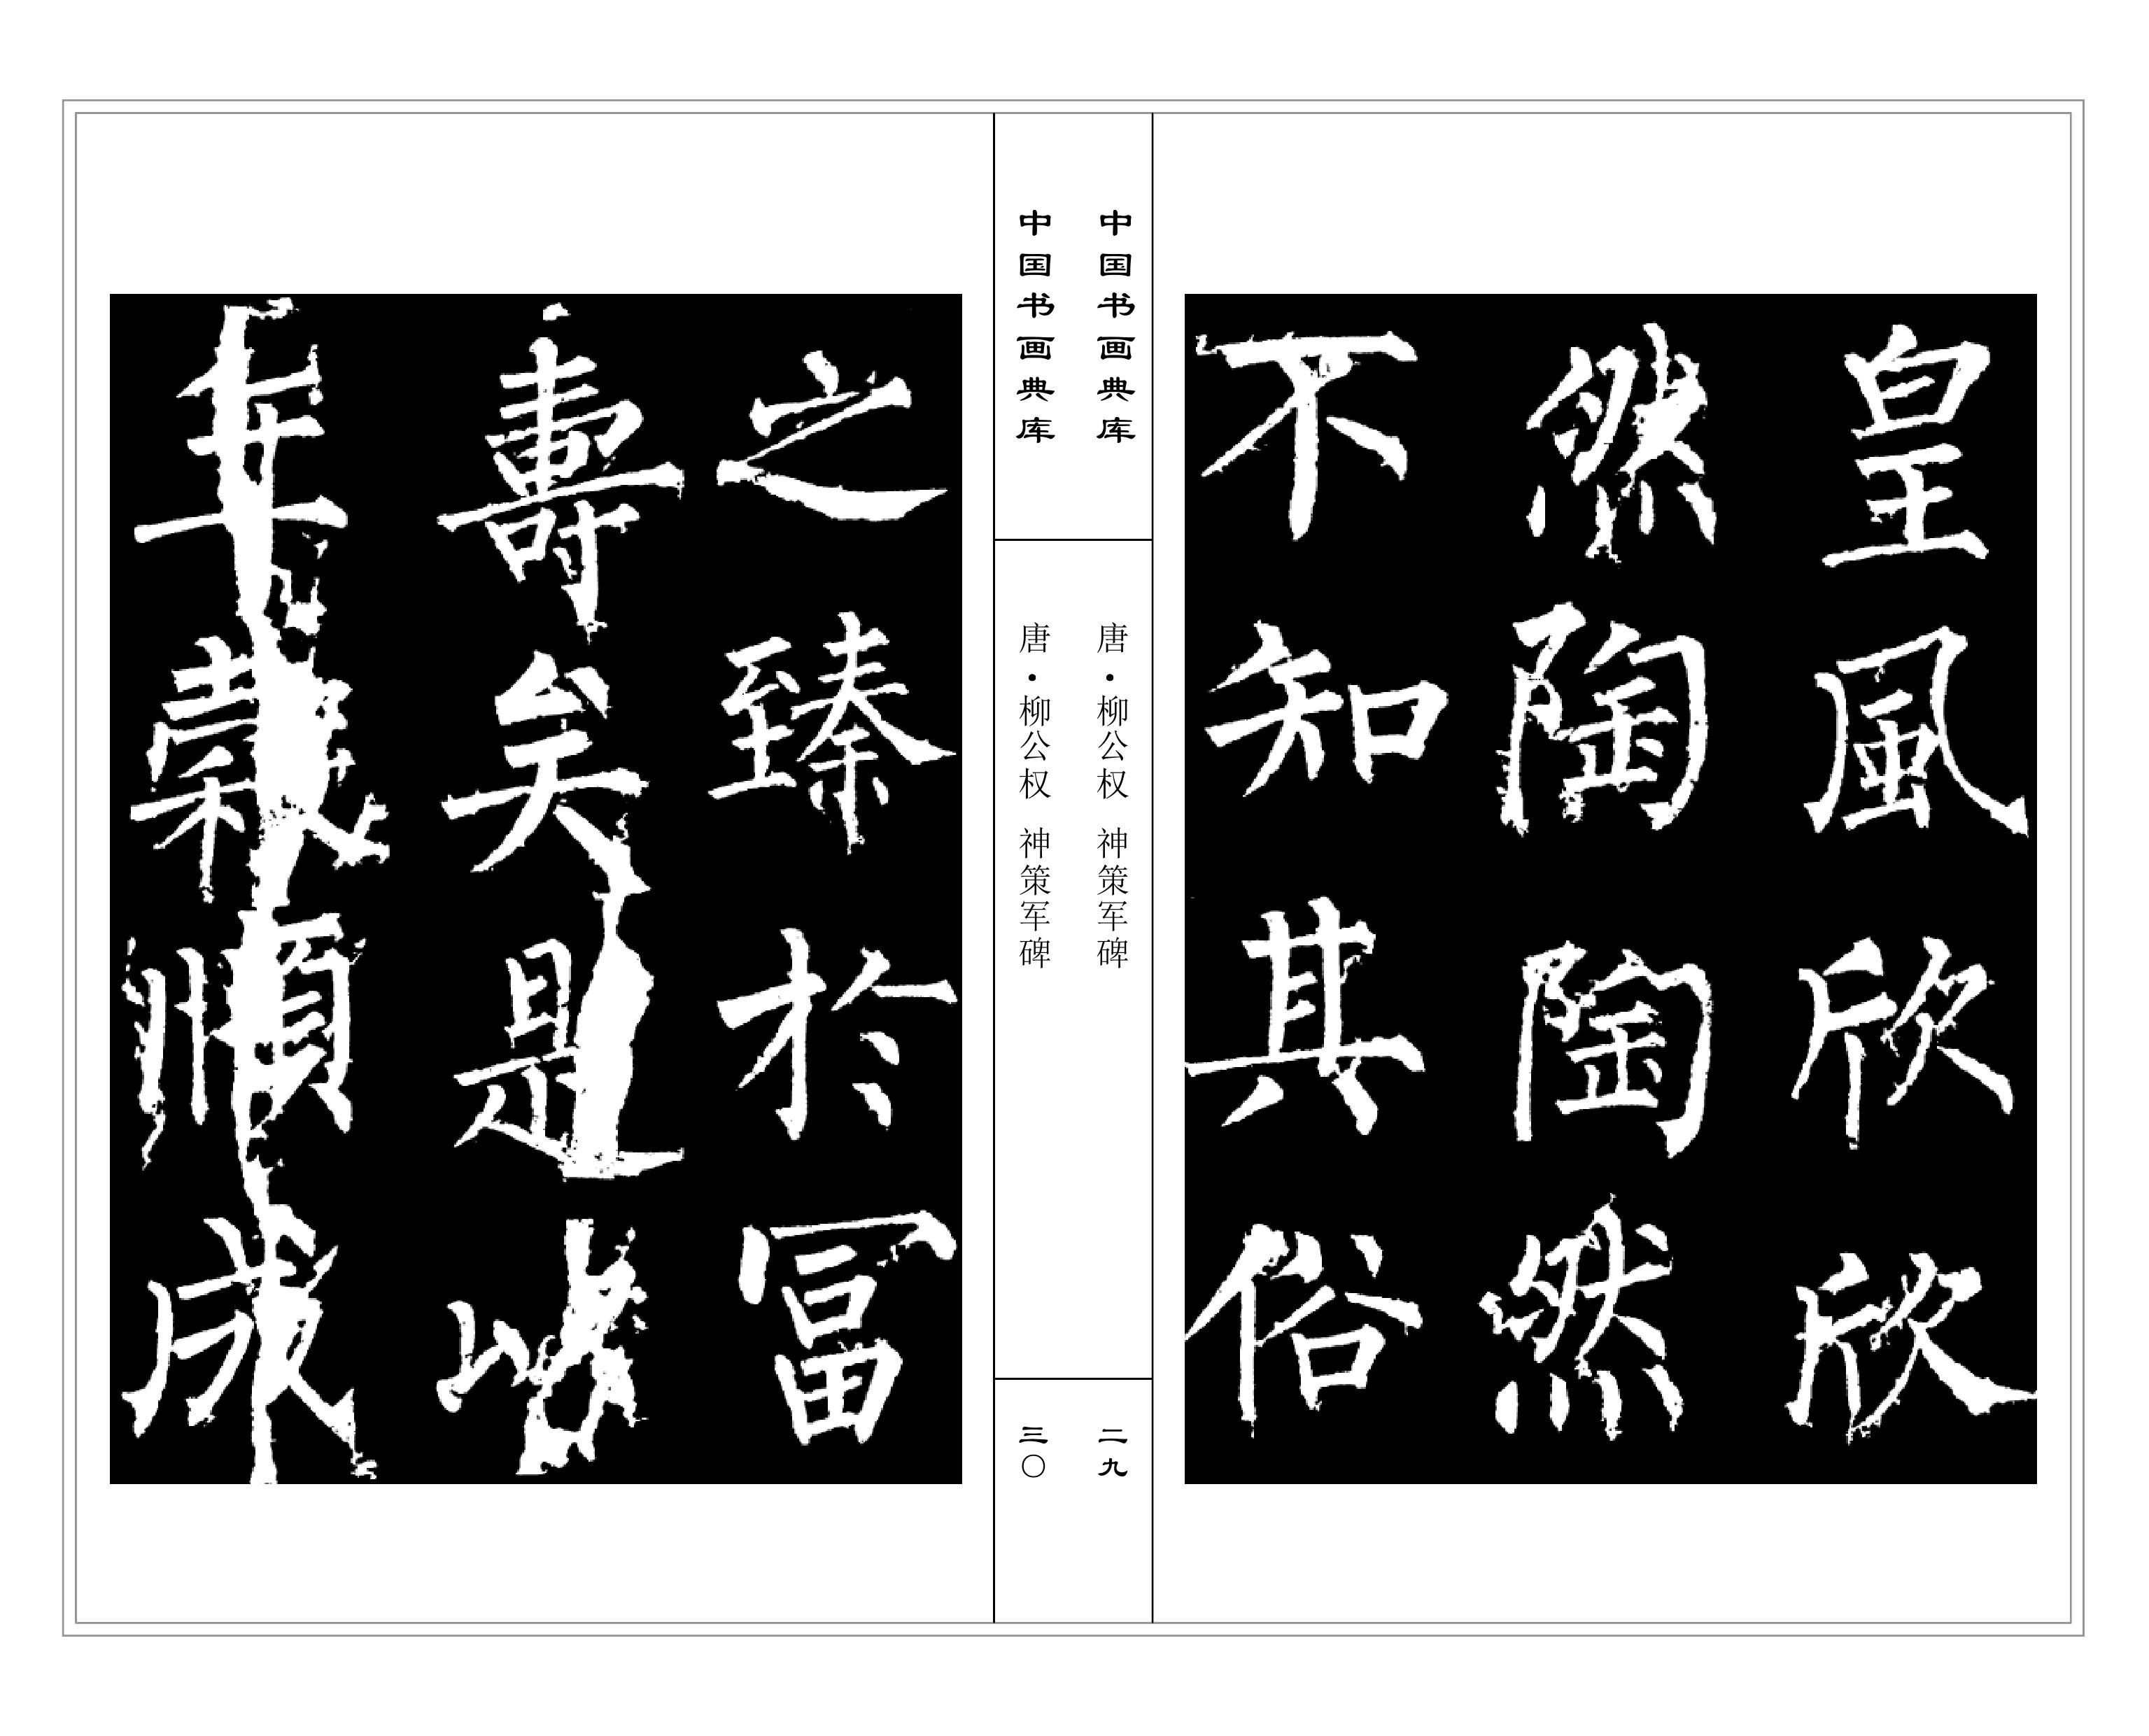 皇風欣欣
然陶陶然
不知其俗
中国书画典库
唐·柳公权 神策军碑
二九
中国书画典库
唐·柳公权 神策军碑
三〇
之臻於富
壽矣是以
年穀順成